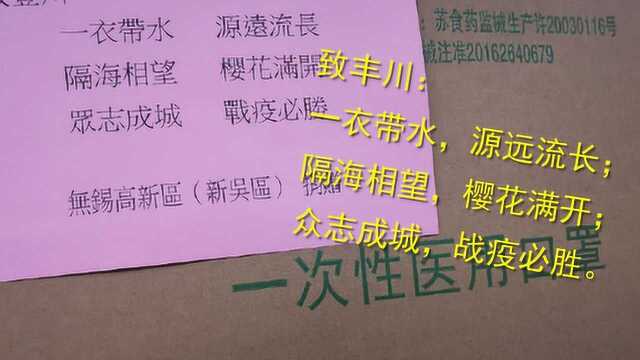 一衣帶水 源遠流長
隔海相望 櫻花滿開
眾志成城 戰疫必勝
無錫高新區（新吳區）捐贈
：苏食药监械生产许20030116号
械注准20162640679
致丰川：
一衣带水，源远流长；
隔海相望，樱花满开；
众志成城，战疫必胜。
一次性医用口罩